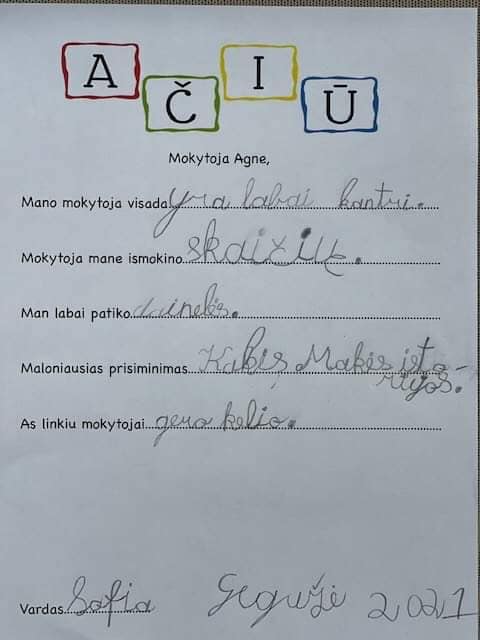 AČIŪ
Mokytoja Agne,
Mano mokytoja visada yra labai kantri.
Mokytoja mane ismokino skaičių.
Man labai patiko dainelės.
Maloniausias prisiminimas Kakės Makės isto-
rijos.
As linkiu mokytojai gero kelio.
Vardas Sofia Gegužė 2021